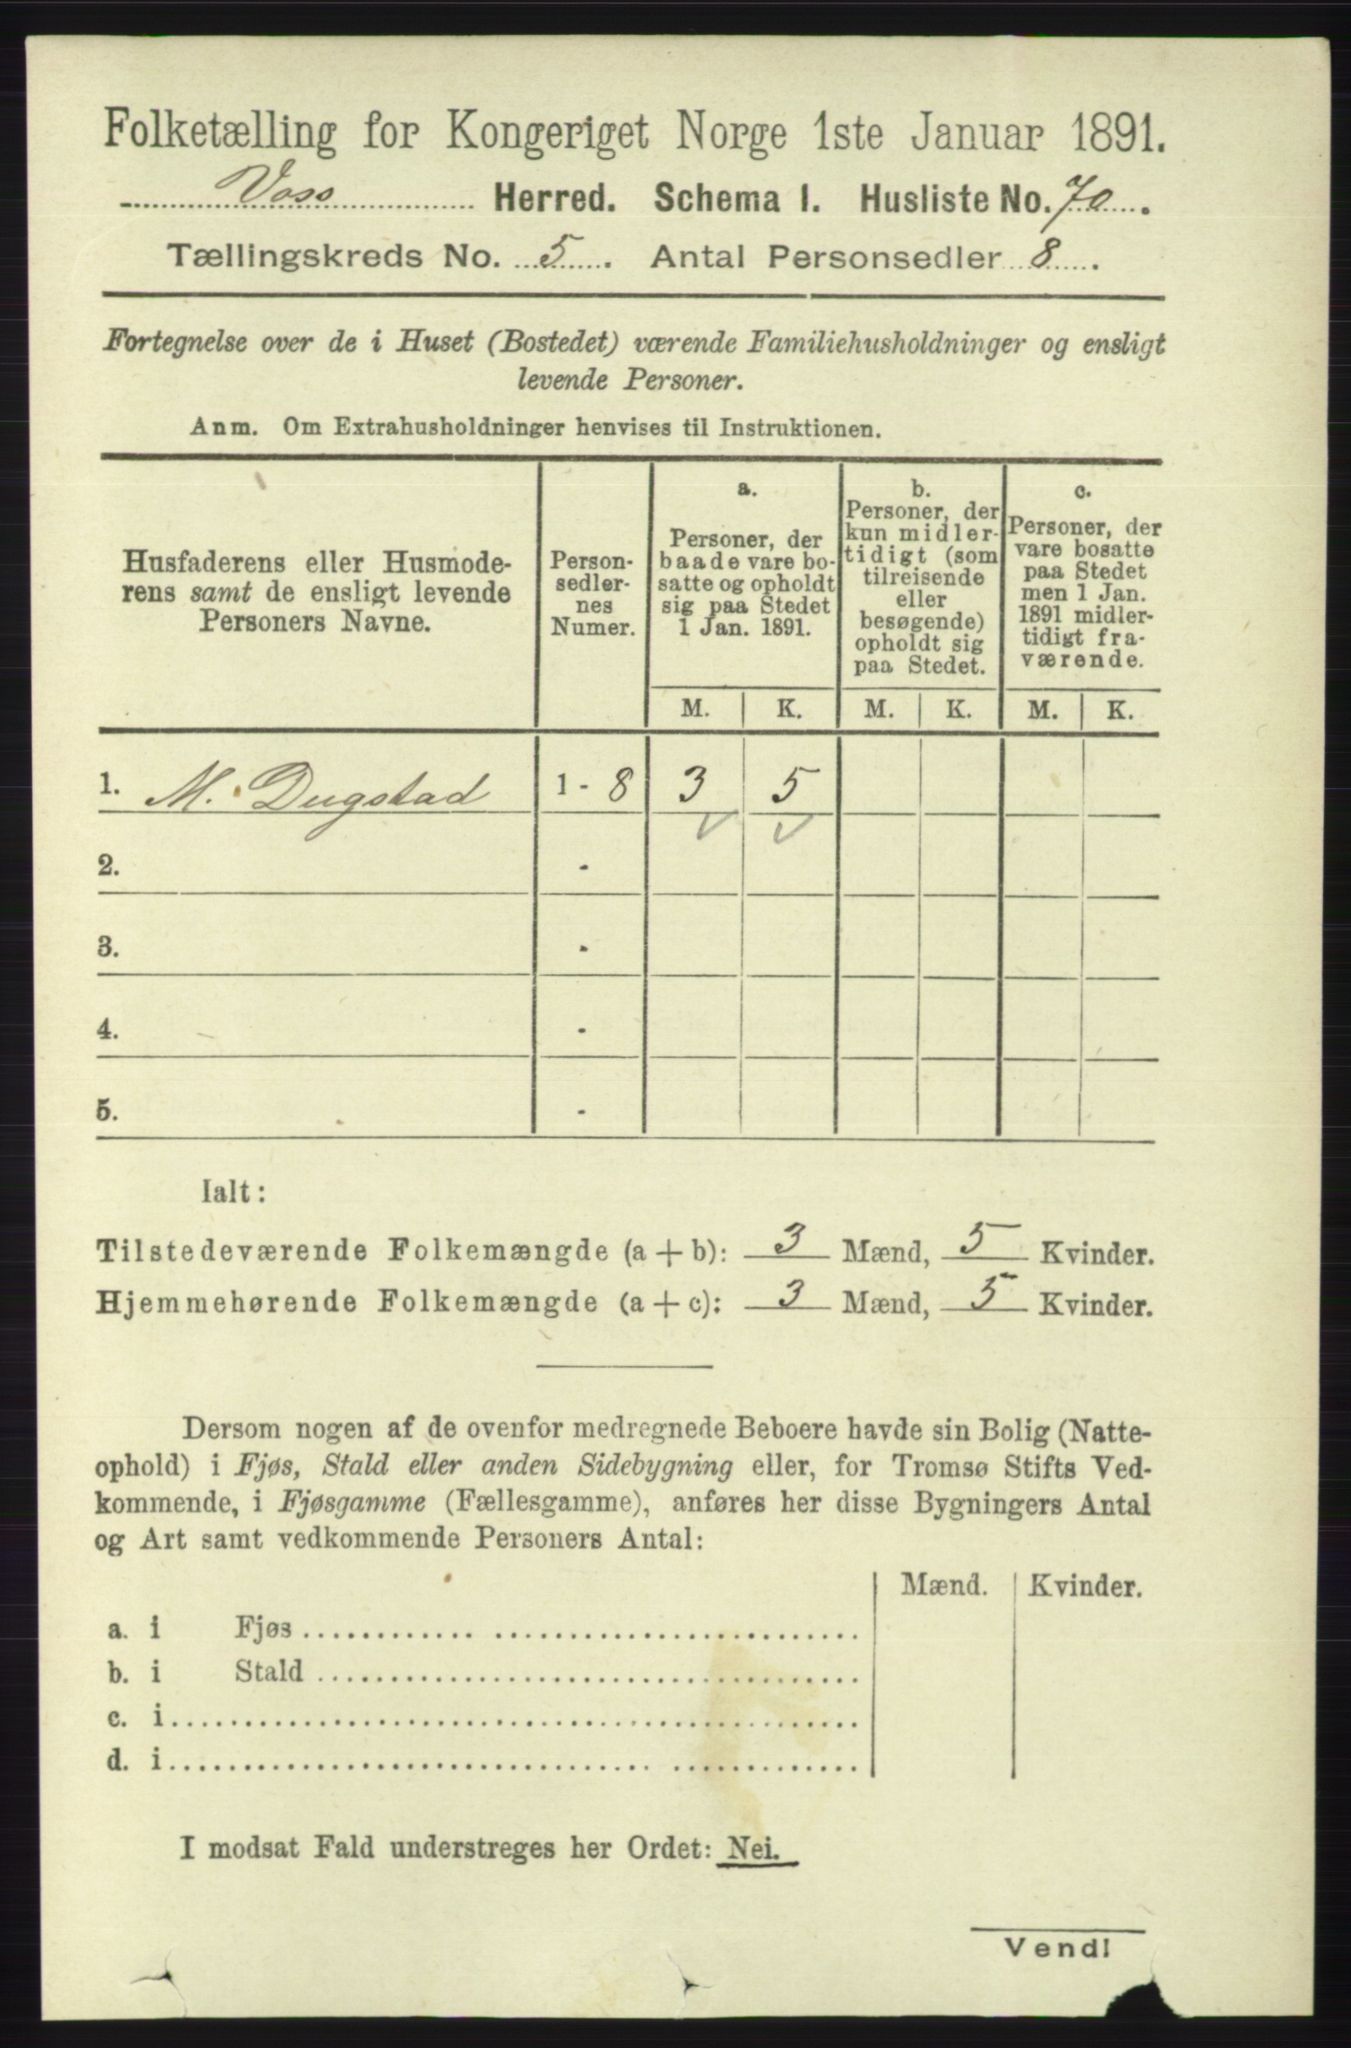 Folketælling for Kongeriget Norge 1ste Januar 1891.
Voss Herred. Schema I. Husliste No. 70.
Tællingskreds No. 5. Antal Personsedler 8.
Fortegnelse over de i Huset (Bostedet) værende Familiehusholdninger og ensligt
levende Personer.
Anm. Om Extrahusholdninger henvises til Instruktionen.
Husfaderens eller Husmode-
rens samt de ensligt levende
Personers Navne.
Person-
sedler-
nes
Numer.
a.
Personer, der
baade vare bo-
satte og opholdt
sig paa Stedet
1 Jan. 1891.
b.
Personer, der
kun midler-
tidigt (som
tilreisende
eller
besøgende)
opholdt sig
paa Stedet.
c.
Personer, der
vare bosatte
paa Stedet
men 1 Jan.
1891 midler-
tidigt fra-
værende.
M. K. M. K. M. K.
1. M. Dugstad 1 - 8 3 5
2. -
3. -
4. -
5. -
Ialt:
Tilstedeværende Folkemængde (a + b): 3 Mænd, 5 Kvinder.
Hjemmehørende Folkemængde (a + c): 3 Mænd, 5 Kvinder.
Dersom nogen af de ovenfor medregnede Beboere havde sin Bolig (Natte-
ophold) i Fjøs, Stald eller anden Sidebygning eller, for Tromsø Stifts Ved-
kommende, i Fjøsgamme (Fællesgamme), anføres her disse Bygningers Antal
og Art samt vedkommende Personers Antal:
Mænd. Kvinder.
a. i Fjøs
b. i Stald
c. i
d. i
I modsat Fald understreges her Ordet: Nei.
Vend!